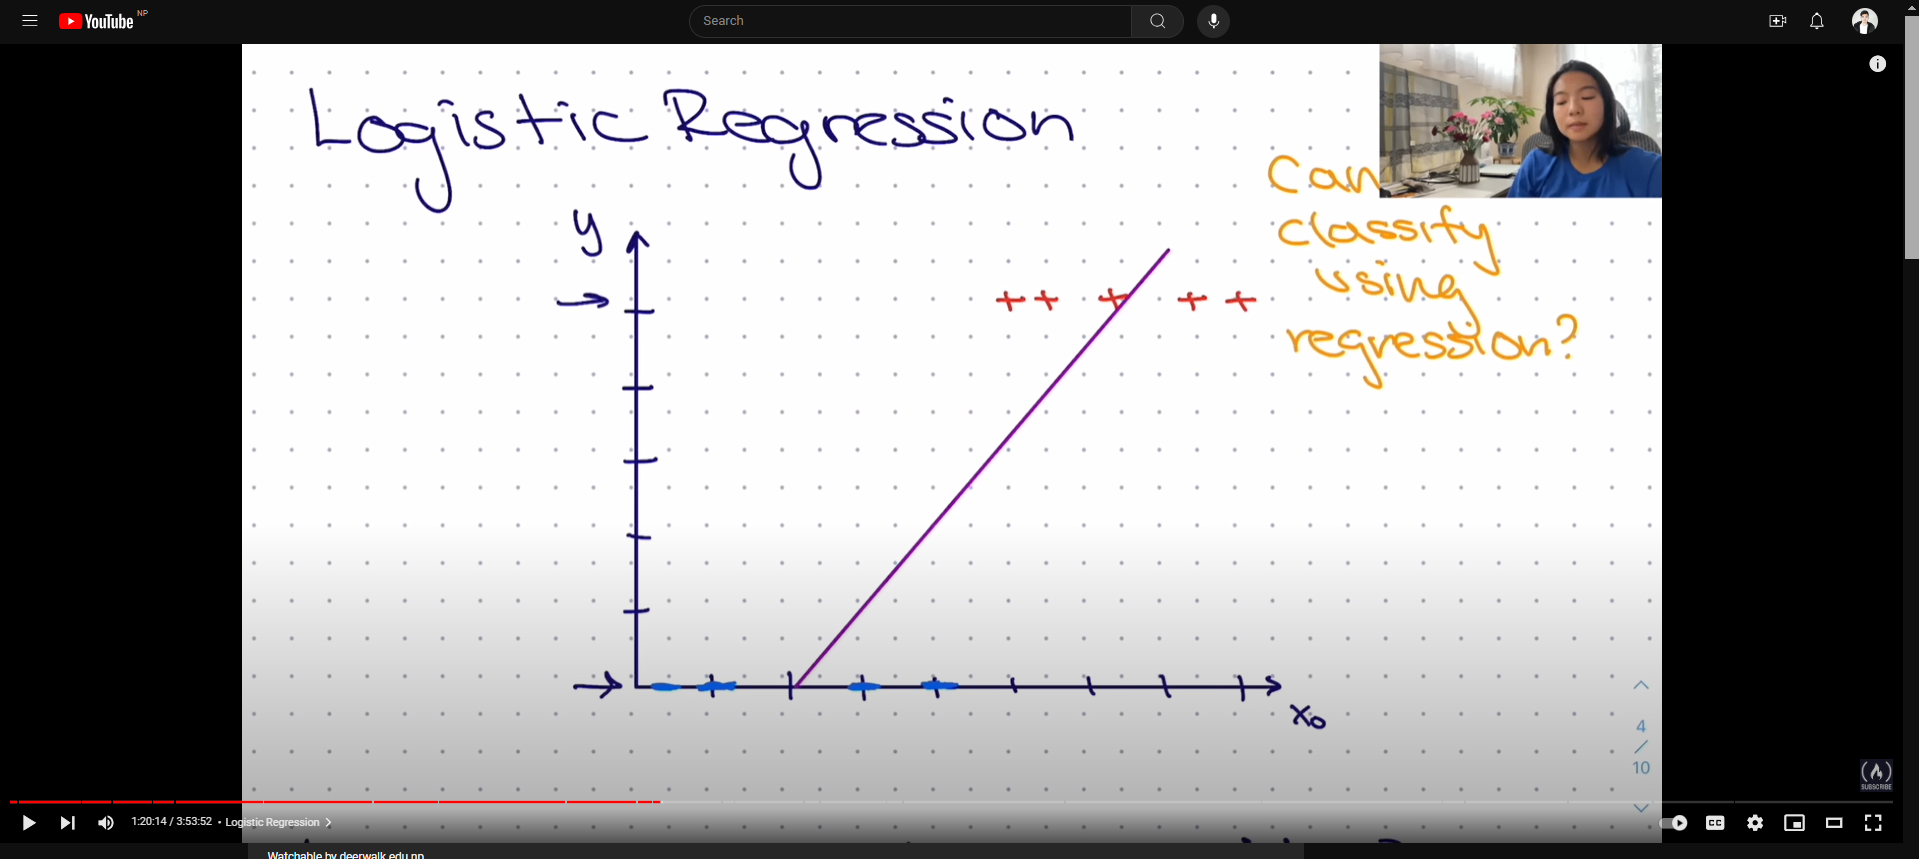 YouTube NP
Search
Logistic Regression
Can
classify
using
regression?
y
+ + + + +
x₀
4
/
10
SUBSCRIBE
1:20:14 / 3:53:52 • Logistic Regression
CC
Watchable by deerwalk.edu.np